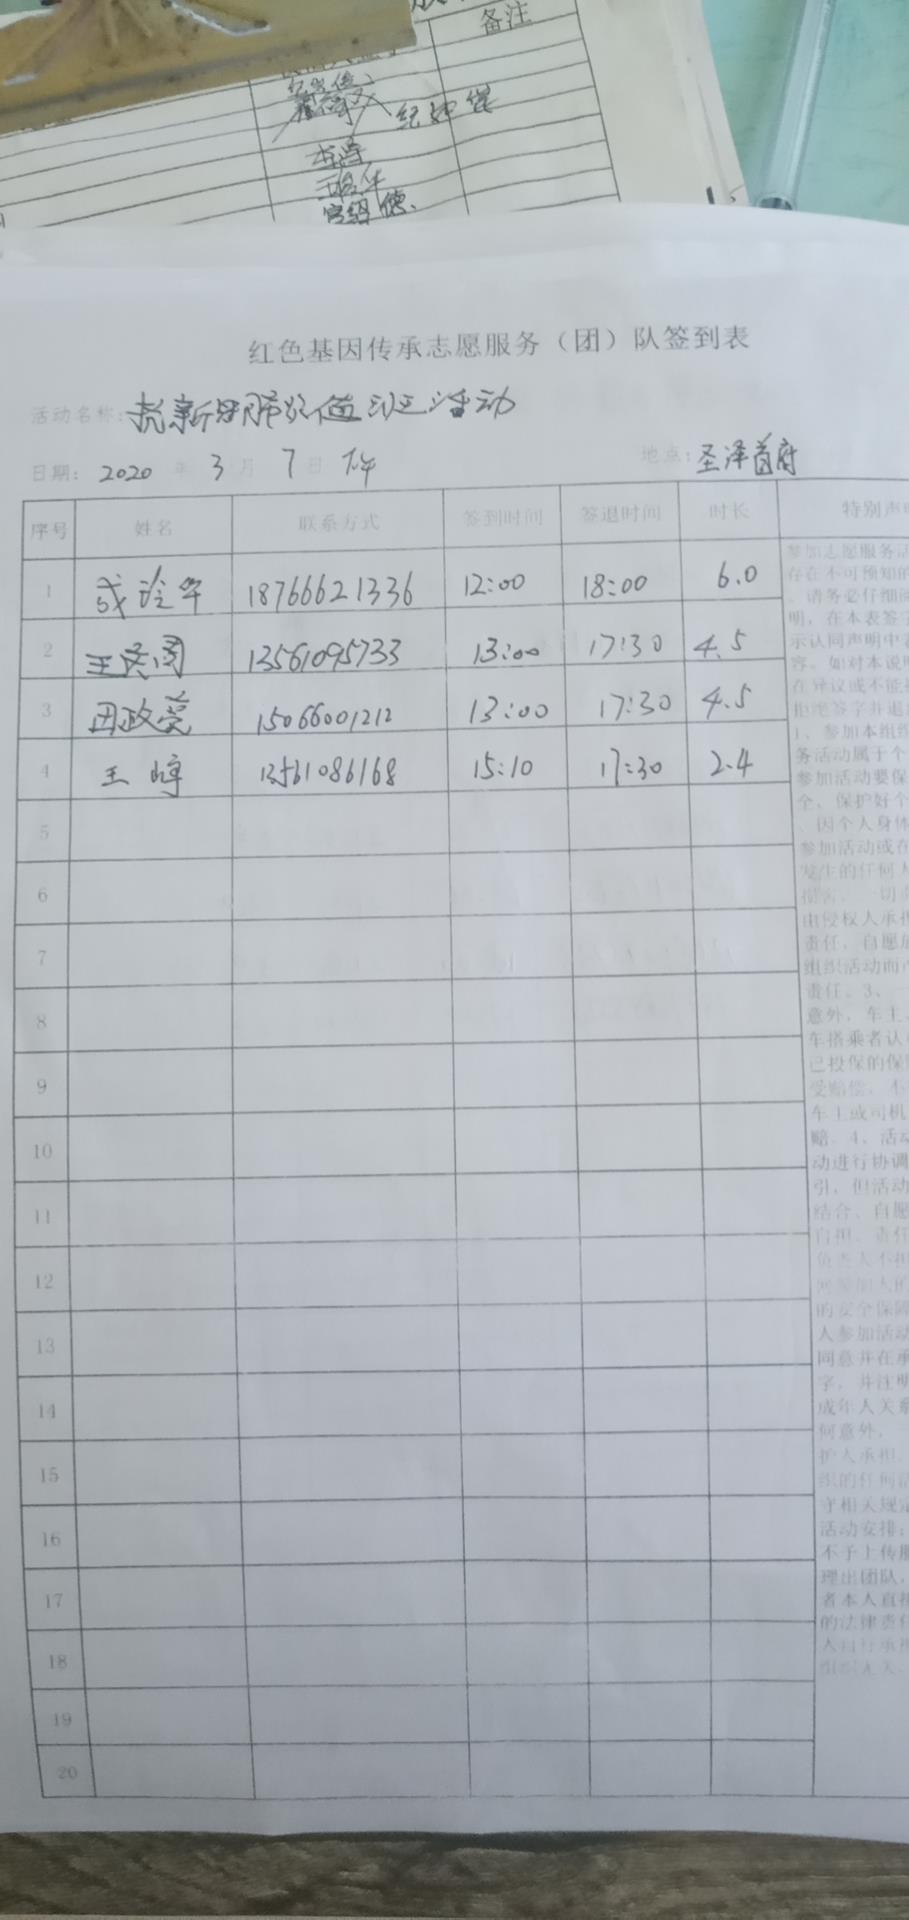 备注
红色基因传承志愿服务（团）队签到表
活动名称：抗新冠肺炎值班活动
日期：2020年3月7日下午 地点：圣泽首府
序号 姓名 联系方式 签到时间 签退时间 时长 特别声明
1 18766621336 12:00 18:00 6.0
2 13561095733 13:00 17:30 4.5
3 田政莹 15066001212 13:00 17:30 4.5
4 王 13561086168 15:10 17:30 2.4
5
6
7
8
9
10
11
12
13
14
15
16
17
18
19
20
参加志愿服务活
存在不可预知的
、请务必仔细阅
明，在本表签字
示认同声明中
容。如对本说明
在异议或不能
拒绝签字并退
1、参加本组织
务活动属于个
参加活动要保
全、保护好个
、因个人身体
参加活动或在
发生的任何人
损害，一切
由侵权人承担
责任，自愿放
组织活动而
责任。3、一
意外，车主、
车搭乘者认
已投保的保
受赔偿，不
车主或司机
赔。4、活动
动进行协调
引，但活动
结合、自愿
自担、责任
负责人不担
的安全保障
人参加活动
同意并在承
字，并注明
成年人关系
何意外，
护人承担。
织的任何活
守相关规定
活动安排；
不予上传服
理出团队，
者本人直接
的法律责任
人自行承担
组织无关。